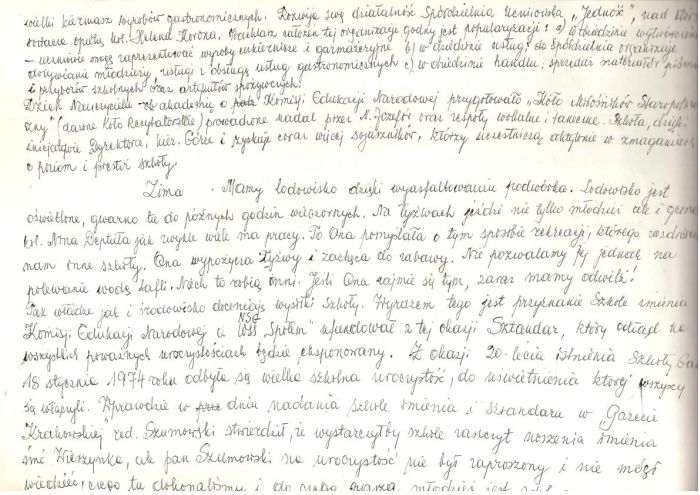 wielki kiermasz wyrobów gastronomicznych. Rozwija swą działalność Spółdzielnia Uczniowska "Jedność", nad którą
roztacza opiekę kol. Helena Korona. Wachlarz zadań tej organizacji godny jest popularyzacji: a) w dziedzinie wytwórczości
- uczniowie mogą zaprezentować wyroby cukiernicze i garmażeryjne b) w dziedzinie usług: do spółdzielnia organizuje
dożywianie młodzieży, usługi z obsługą usług gastronomicznych c) w dziedzinie handlu: sprzedaż materiałów piśmien
i przyborów szkolnych oraz artykułów spożywczych.
Dzień Nauczyciela akademię o Komisji Edukacji Narodowej przygotowało "Koło Miłośników Staropolsz
czny" (dawne Koło Recytatorskie) prowadzone nadal przez M. Józefów oraz zespoły wokalne i taneczne. Szkoła, dzięki
inicjatywie Dyrektora, kier. Górze i zyskuje coraz więcej sojuszników, którzy uczestniczą aktywnie w zmaganiach
o poziom i prestiż szkoły.
Zima. Mamy lodowisko dzięki wyasfaltowaniu podwórka. Lodowisko jest
oświetlone, gwarno tu do późnych godzin wieczornych. Na łyżwach jeździ nie tylko młodzież ale i grono
kol. Nina Deptuła jak zwykle wiele ma pracy. To Ona pomyślała o tym sposobie rekreacji, którego zazdroszczą
nam inne szkoły. Ona wypożycza łyżwy i zachęca do zabawy. Nie pozwalamy jej jednak na
polewanie wodą tafli. Niech to robią inni. Jeśli Ona zajmie się tym, zaraz mamy odwilż!
Tak władze jak i środowisko doceniają wysiłki szkoły. Wyrazem tego jest przyznanie Szkole imienia
Komisji Edukacji Narodowej a WSS NSG "Społem" ufundował z tej okazji Sztandar, który odtąd na
wszystkich poważnych uroczystościach będzie eksponowany. Z okazji 20-lecia istnienia Szkoły Gas
18 stycznia 1974 roku odbyła się wielka szkolna uroczystość, do uświetnienia której wszyscy
się włączyli. Wprawdzie w dniu nadania szkole imienia i sztandaru w "Gazecie
Krakowskiej" red. Szumowski stwierdził, że wystarczyłby szkole zaszczyt noszenia imienia
imć Wierzynka, ale pan Szumowski na uroczystość nie był zaproszony i nie mógł
wiedzieć, czego tu dokonaliśmy i do czego młodzież jest